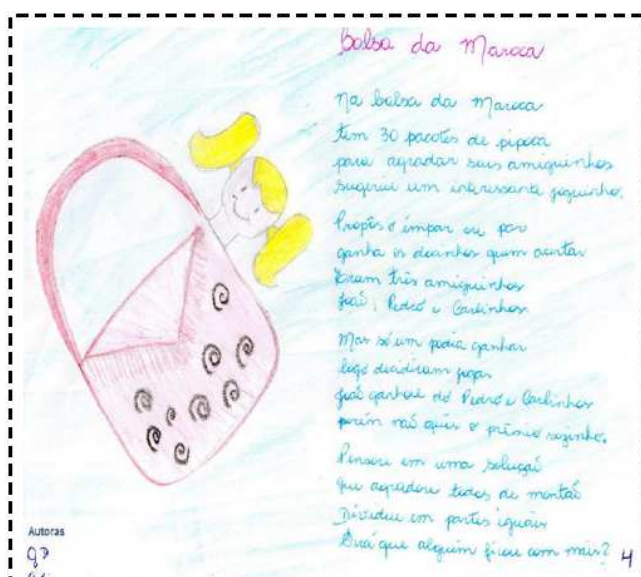 Bolsa da Maroca
Na bolsa da Maroca
tem 30 pacotes de pipoca
para agradar seus amiguinhos
sugeriu um interessante joguinho.
Propôs o ímpar ou par
ganha os docinhos quem acertar
Eram três amiguinhos
João, Pedro e Carlinhos
Mas só um podia ganhar
logo decidiram jogar
João ganhou do Pedro e Carlinhos
porém não quis o prêmio sozinho.
Pensou em uma solução
que agradou todos de montão
Dividiu em partes iguais
Será que alguém ficou com mais?
4
Autoras